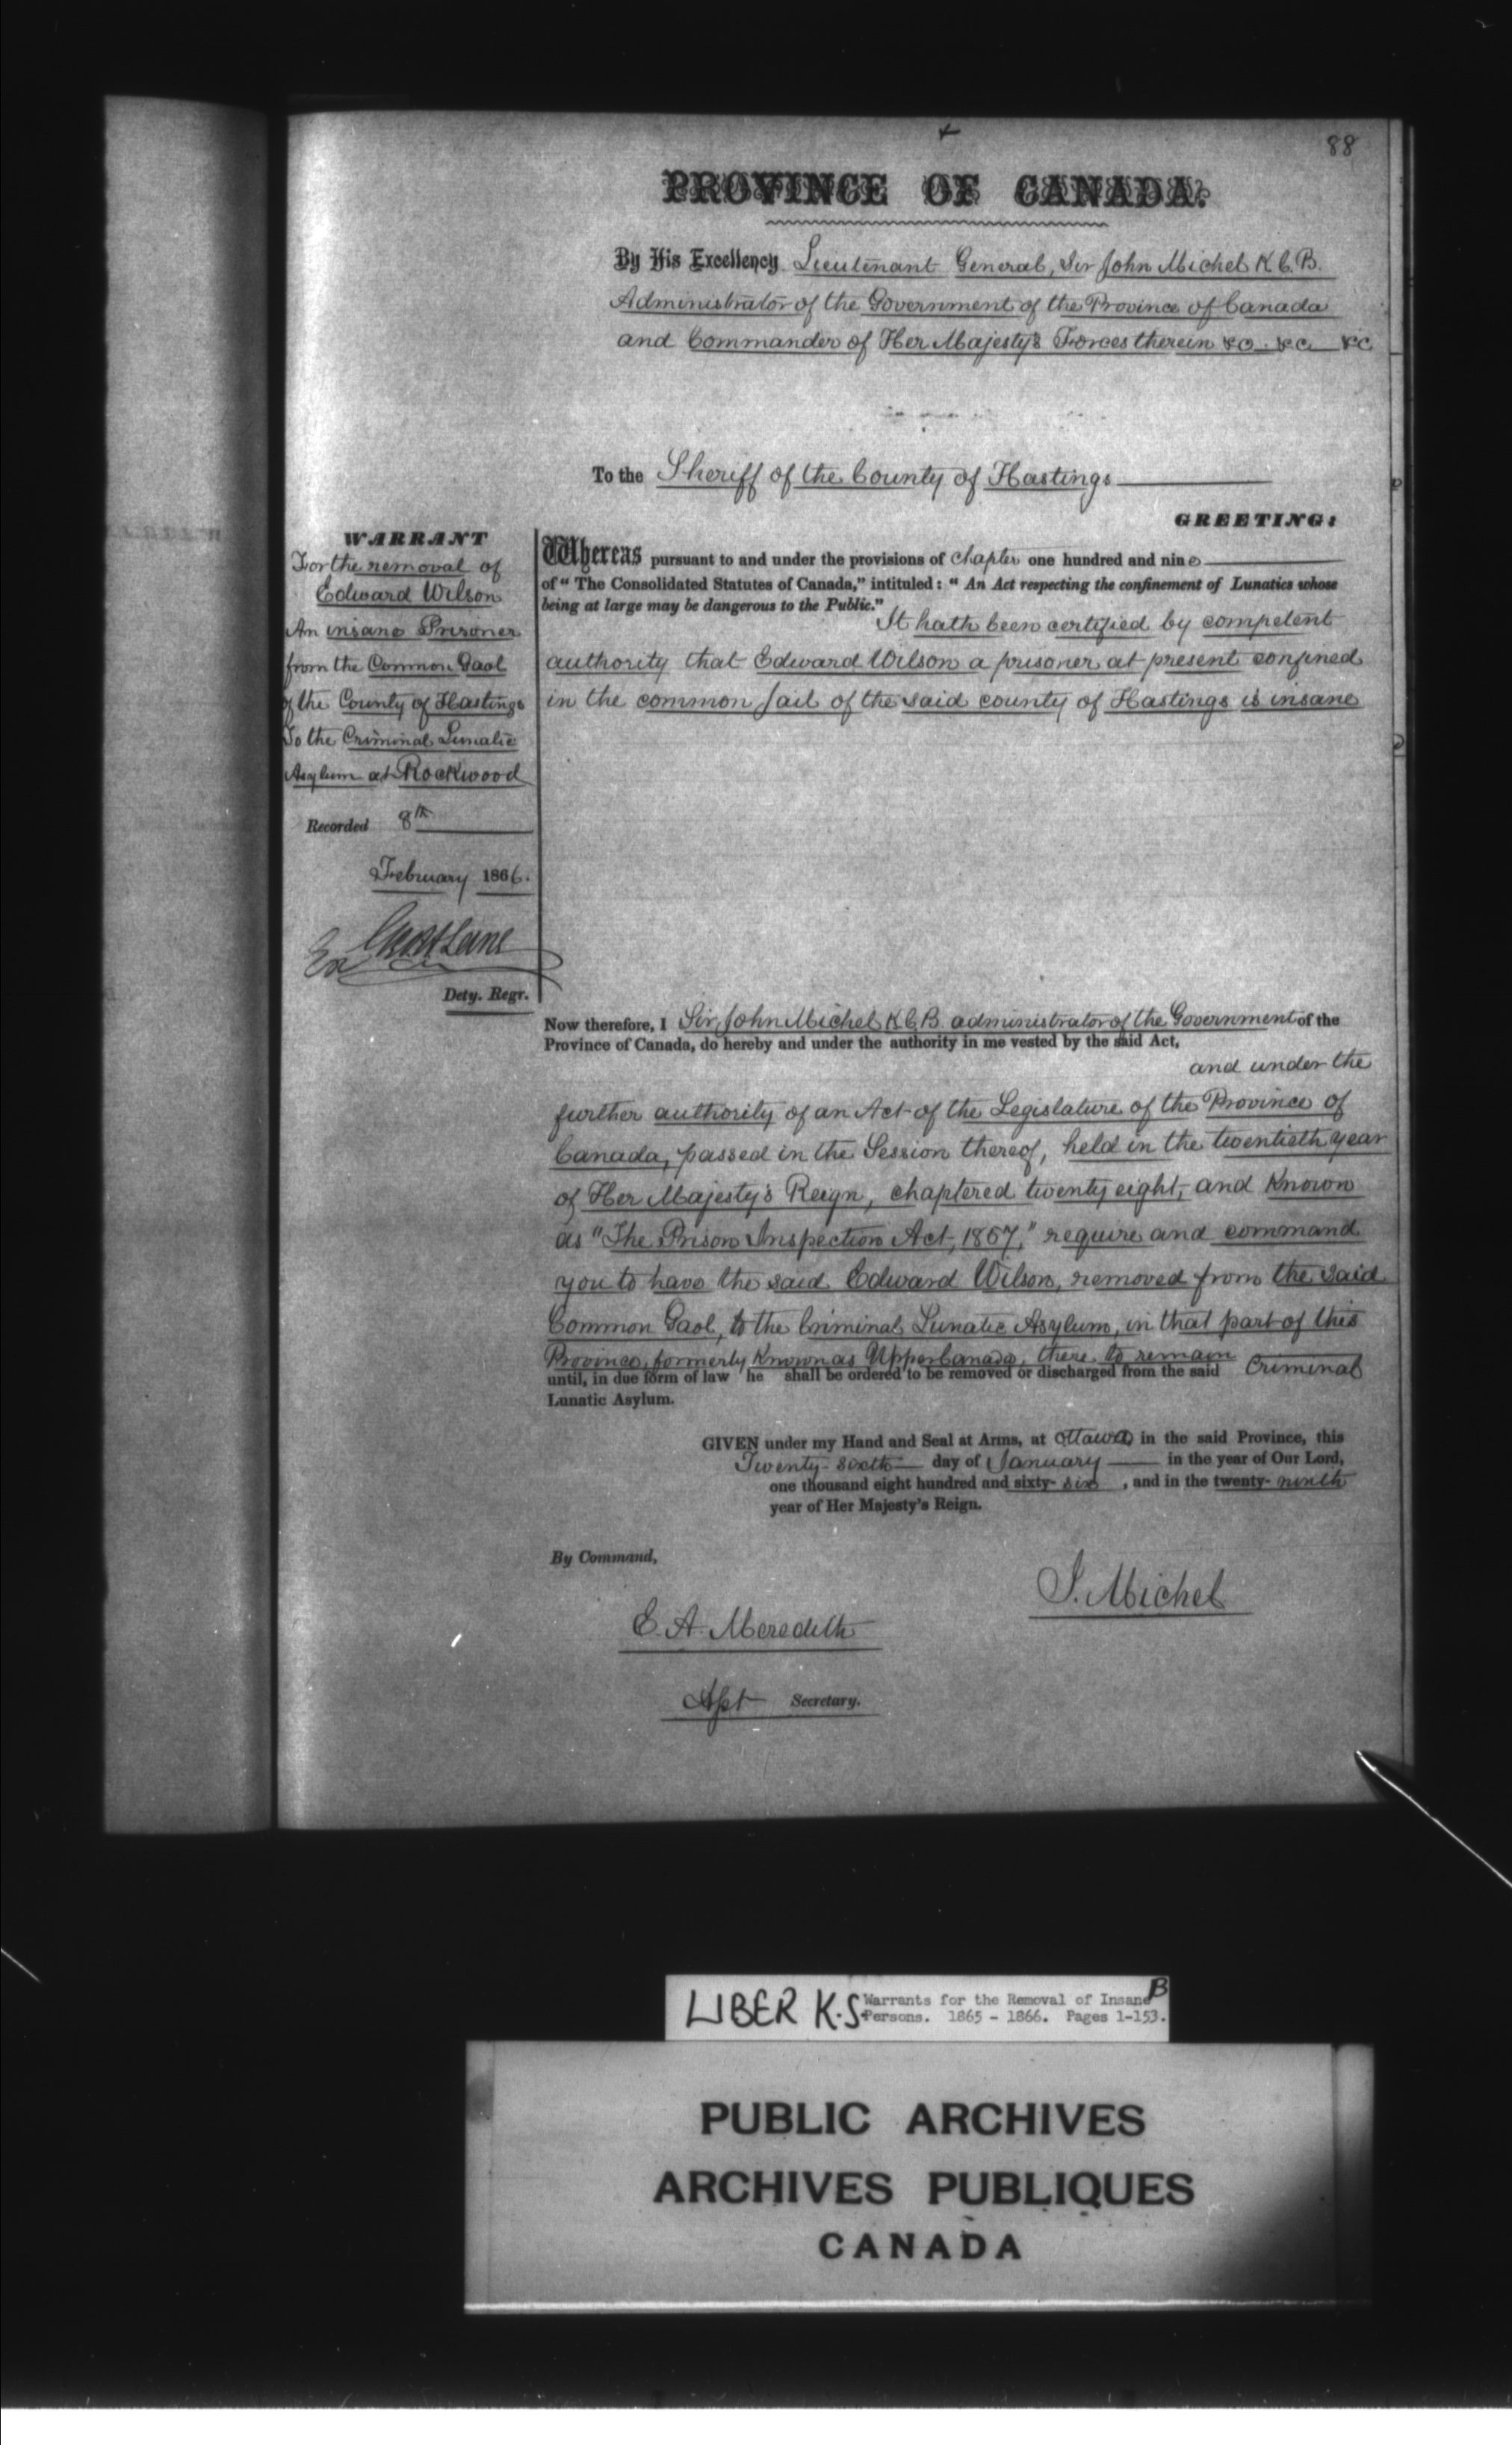 88
PROVINCE OF CANADA.
By His Excellency Lieutenant General, Sir John Michel K.C.B.
Administrator of the Government of the Province of Canada
and Commander of Her Majesty's Forces therein &c. &c. &c
To the Sheriff of the County of Hastings
GREETING:
WARRANT
For the removal of
Edward Wilson
An insane Prisoner
from the Common Gaol
of the County of Hastings
To the Criminal Lunatic
Asylum at Rockwood
Recorded 8th
February 1866.
Dety. Regr.
Whereas pursuant to and under the provisions of chapter one hundred and nine
of "The Consolidated Statutes of Canada," intituled: "An Act respecting the confinement of Lunatics whose
being at large may be dangerous to the Public."
It hath been certified by competent
authority that Edward Wilson a prisoner at present confined
in the common Jail of the said county of Hastings is insane
Now therefore, I Sir, John Michel K C B. administrator of the Government of the
Province of Canada, do hereby and under the authority in me vested by the said Act,
and under the
further authority of an Act of the Legislature of the Province of
Canada, passed in the Session thereof, held in the twentieth year
of Her Majesty's Reign, chaptered twenty eight, and Known
as "The Prison Inspection Act, 1857," require and command
you to have the said Edward Wilson, removed from the said
Common Gaol, to the Criminal Lunatic Asylum, in that part of this
Province, formerly Known as Upper Canada, there to remain
until, in due form of law he shall be ordered to be removed or discharged from the said Criminal
Lunatic Asylum.
GIVEN under my Hand and Seal at Arms, at Ottawa, in the said Province, this
Twenty-sixth day of January in the year of Our Lord,
one thousand eight hundred and sixty-six, and in the twenty-ninth
year of Her Majesty's Reign.
By Command,
J. Michel
E. A. Meredith
Asst Secretary.
LIBER K.S. Warrants for the Removal of Insane B
Persons. 1865 - 1866. Pages 1-153.
PUBLIC ARCHIVES
ARCHIVES PUBLIQUES
CANADA